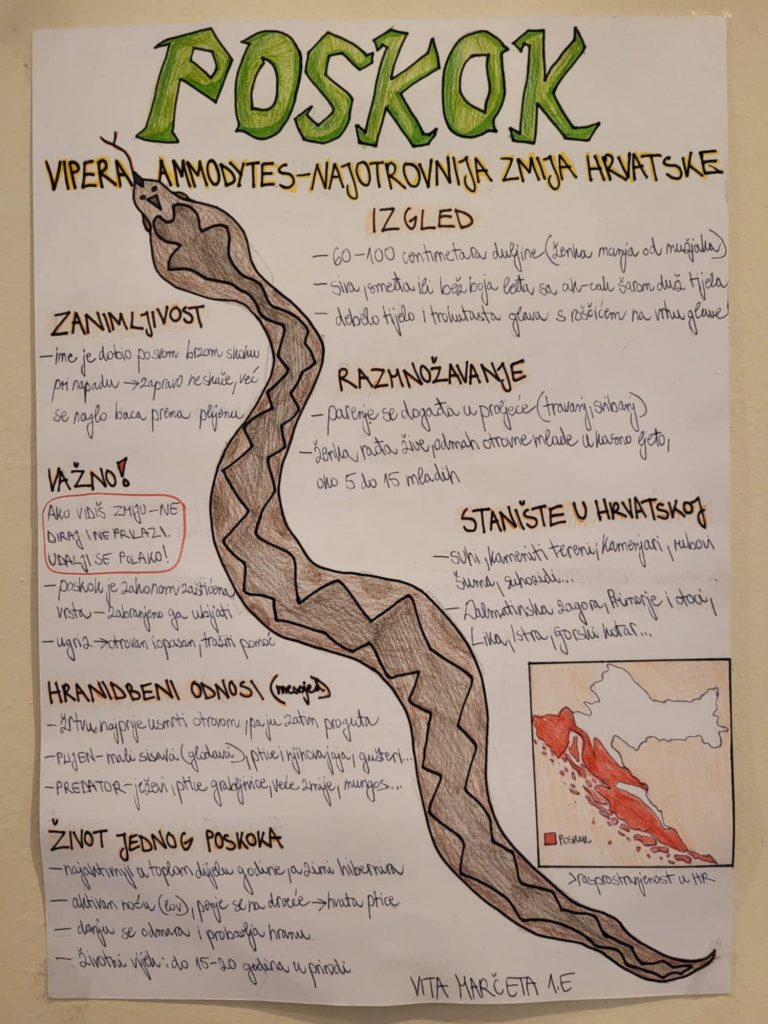 POSKOK
VIPERA AMMODYTES-NAJOTROVNIJA ZMIJA HRVATSKE
IZGLED
- 60-100 centimetara duljine (ženka manja od mužjaka)
- siva, smeđa ili bež boja leđa sa cik-cak šarom duž tijela
- debelo tijelo i trokutasta glava s roščićem na vrhu glave
ZANIMLJIVOST
- ime je dobio po svom brzom skoku
pri napadu → zapravo ne skače, već
se naglo baca prema plijenu
RAZMNOŽAVANJE
- parenje se događa u proljeće (travanj, svibanj)
- ženka rađa žive, odmah otrovne mlade u kasno ljeto,
oko 5 do 15 mladih
VAŽNO!
AKO VIDIŠ ZMIJU-NE
DIRAJ I NE PRILAZI.
UDALJI SE POLAKO!
- poskok je zakonom zaštićena
vrsta - zabranjeno ga ubijati
- ugriz → otrovan i opasan, tražiti pomoć
STANIŠTE U HRVATSKOJ
- suhi, kameniti tereni, kamenjari, rubovi
šuma, suhozidi...
- Dalmatinska zagora, Primorje i otoci,
Lika, Istra, gorski kotar...
HRANIDBENI ODNOSI (mesojed)
- žrtvu najprije usmrti otrovom, pa ju zatim proguta
- PLIJEN- mali sisavci (glodavci), ptice i njihova jaja, gušteri...
- PREDATOR- ježevi, ptice grabljivice, veće zmije, mungos...
POSKOK
>rasprostranjenost u HR
ŽIVOT JEDNOG POSKOKA
- najaktivniji u toplom dijelu godine, a zimi hibernira
- aktivan noću (lov), penje se na drveće → hvata ptice
- danju se odmara i probavlja hranu
- životni vijek: do 15-20 godina u prirodi
VITA MARČETA 1.E